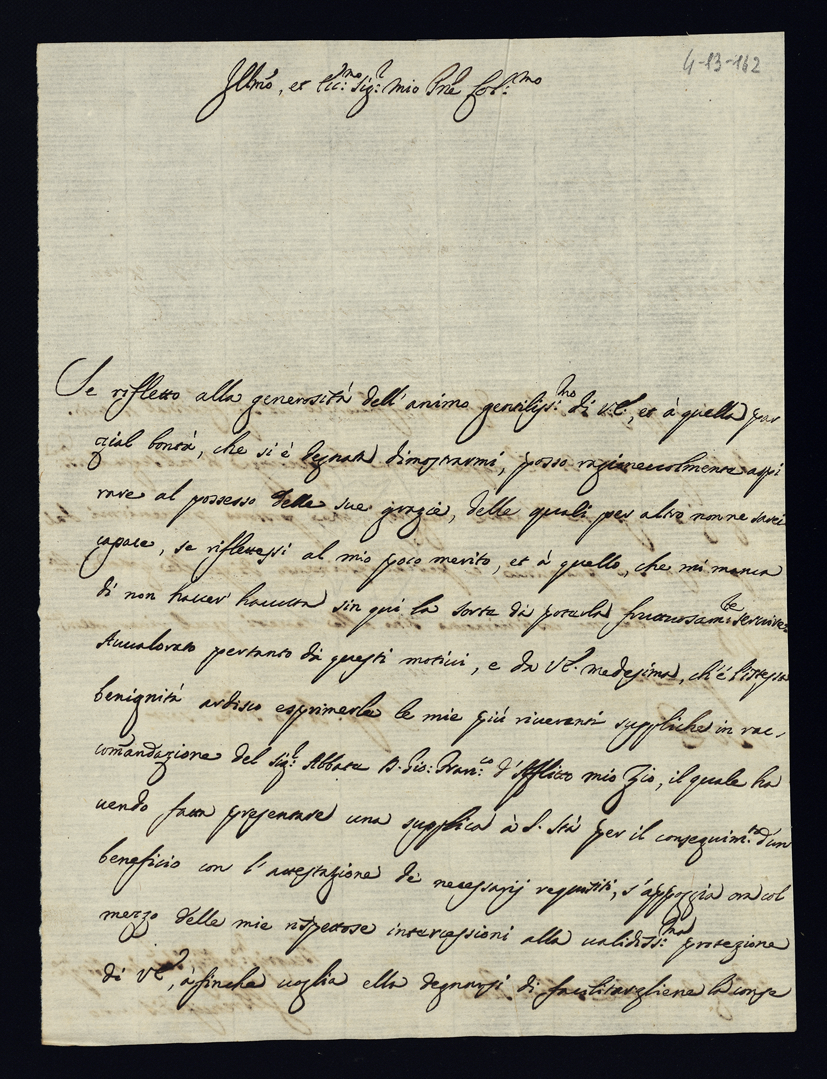 4-13-162
Illmo, et Ecc:mo Sig:r mio Pne Col:mo
Se rifletto alla generosità dell'animo gentiliss:mo di V.E., et à quella par
zial bontà, che si è degnata dimostrarmi, posso ragioneuolmente aspi
rare al possesso delle sue grazie, delle quali per altro non ne sarei
capace, se riflettessi al mio poco merito, et à quello, che mi manca
di non hauer hauuta sin quì la sorte di poterla fruttuosam:te seruire.
Auualorato pertanto da questi motiui, e da V.E. medesima, ch'è l'istessa
benignità ardisco esprimerle le mie più riuerenti suppliche in rac,
comandazione del Sig:r Abbate D. Gio: Fran:co d'Afflitto mio Zio, il quale ha
uendo fatta presentare una supplica à S. Stà per il conseguim:to d'un
beneficio con l'attestazione de necessarij requisiti, s'appoggia ora col
mezzo delle mie rispettose intercessioni alla ualidiss:ma protezione
di V.E., à finche uoglia ella degnarsi di facilitargliene la conse